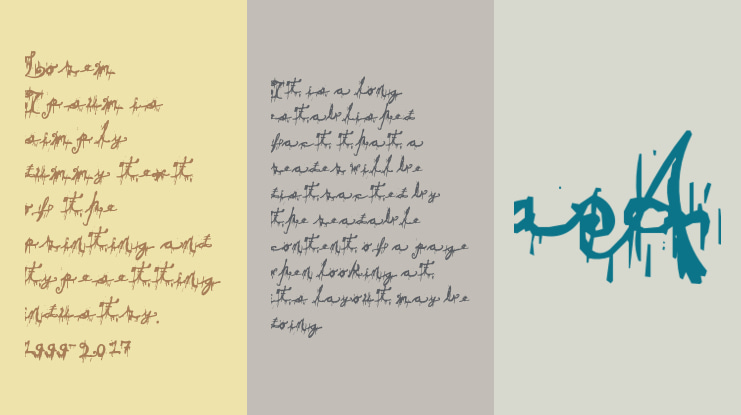 Lorem
Ipsum is
simply
dummy text
of the
printing and
typesetting
industry.
1999-2017
It is a long
established
fact that a
reader will be
distracted by
the readable
content of a page
when looking at
its layout may be
doing